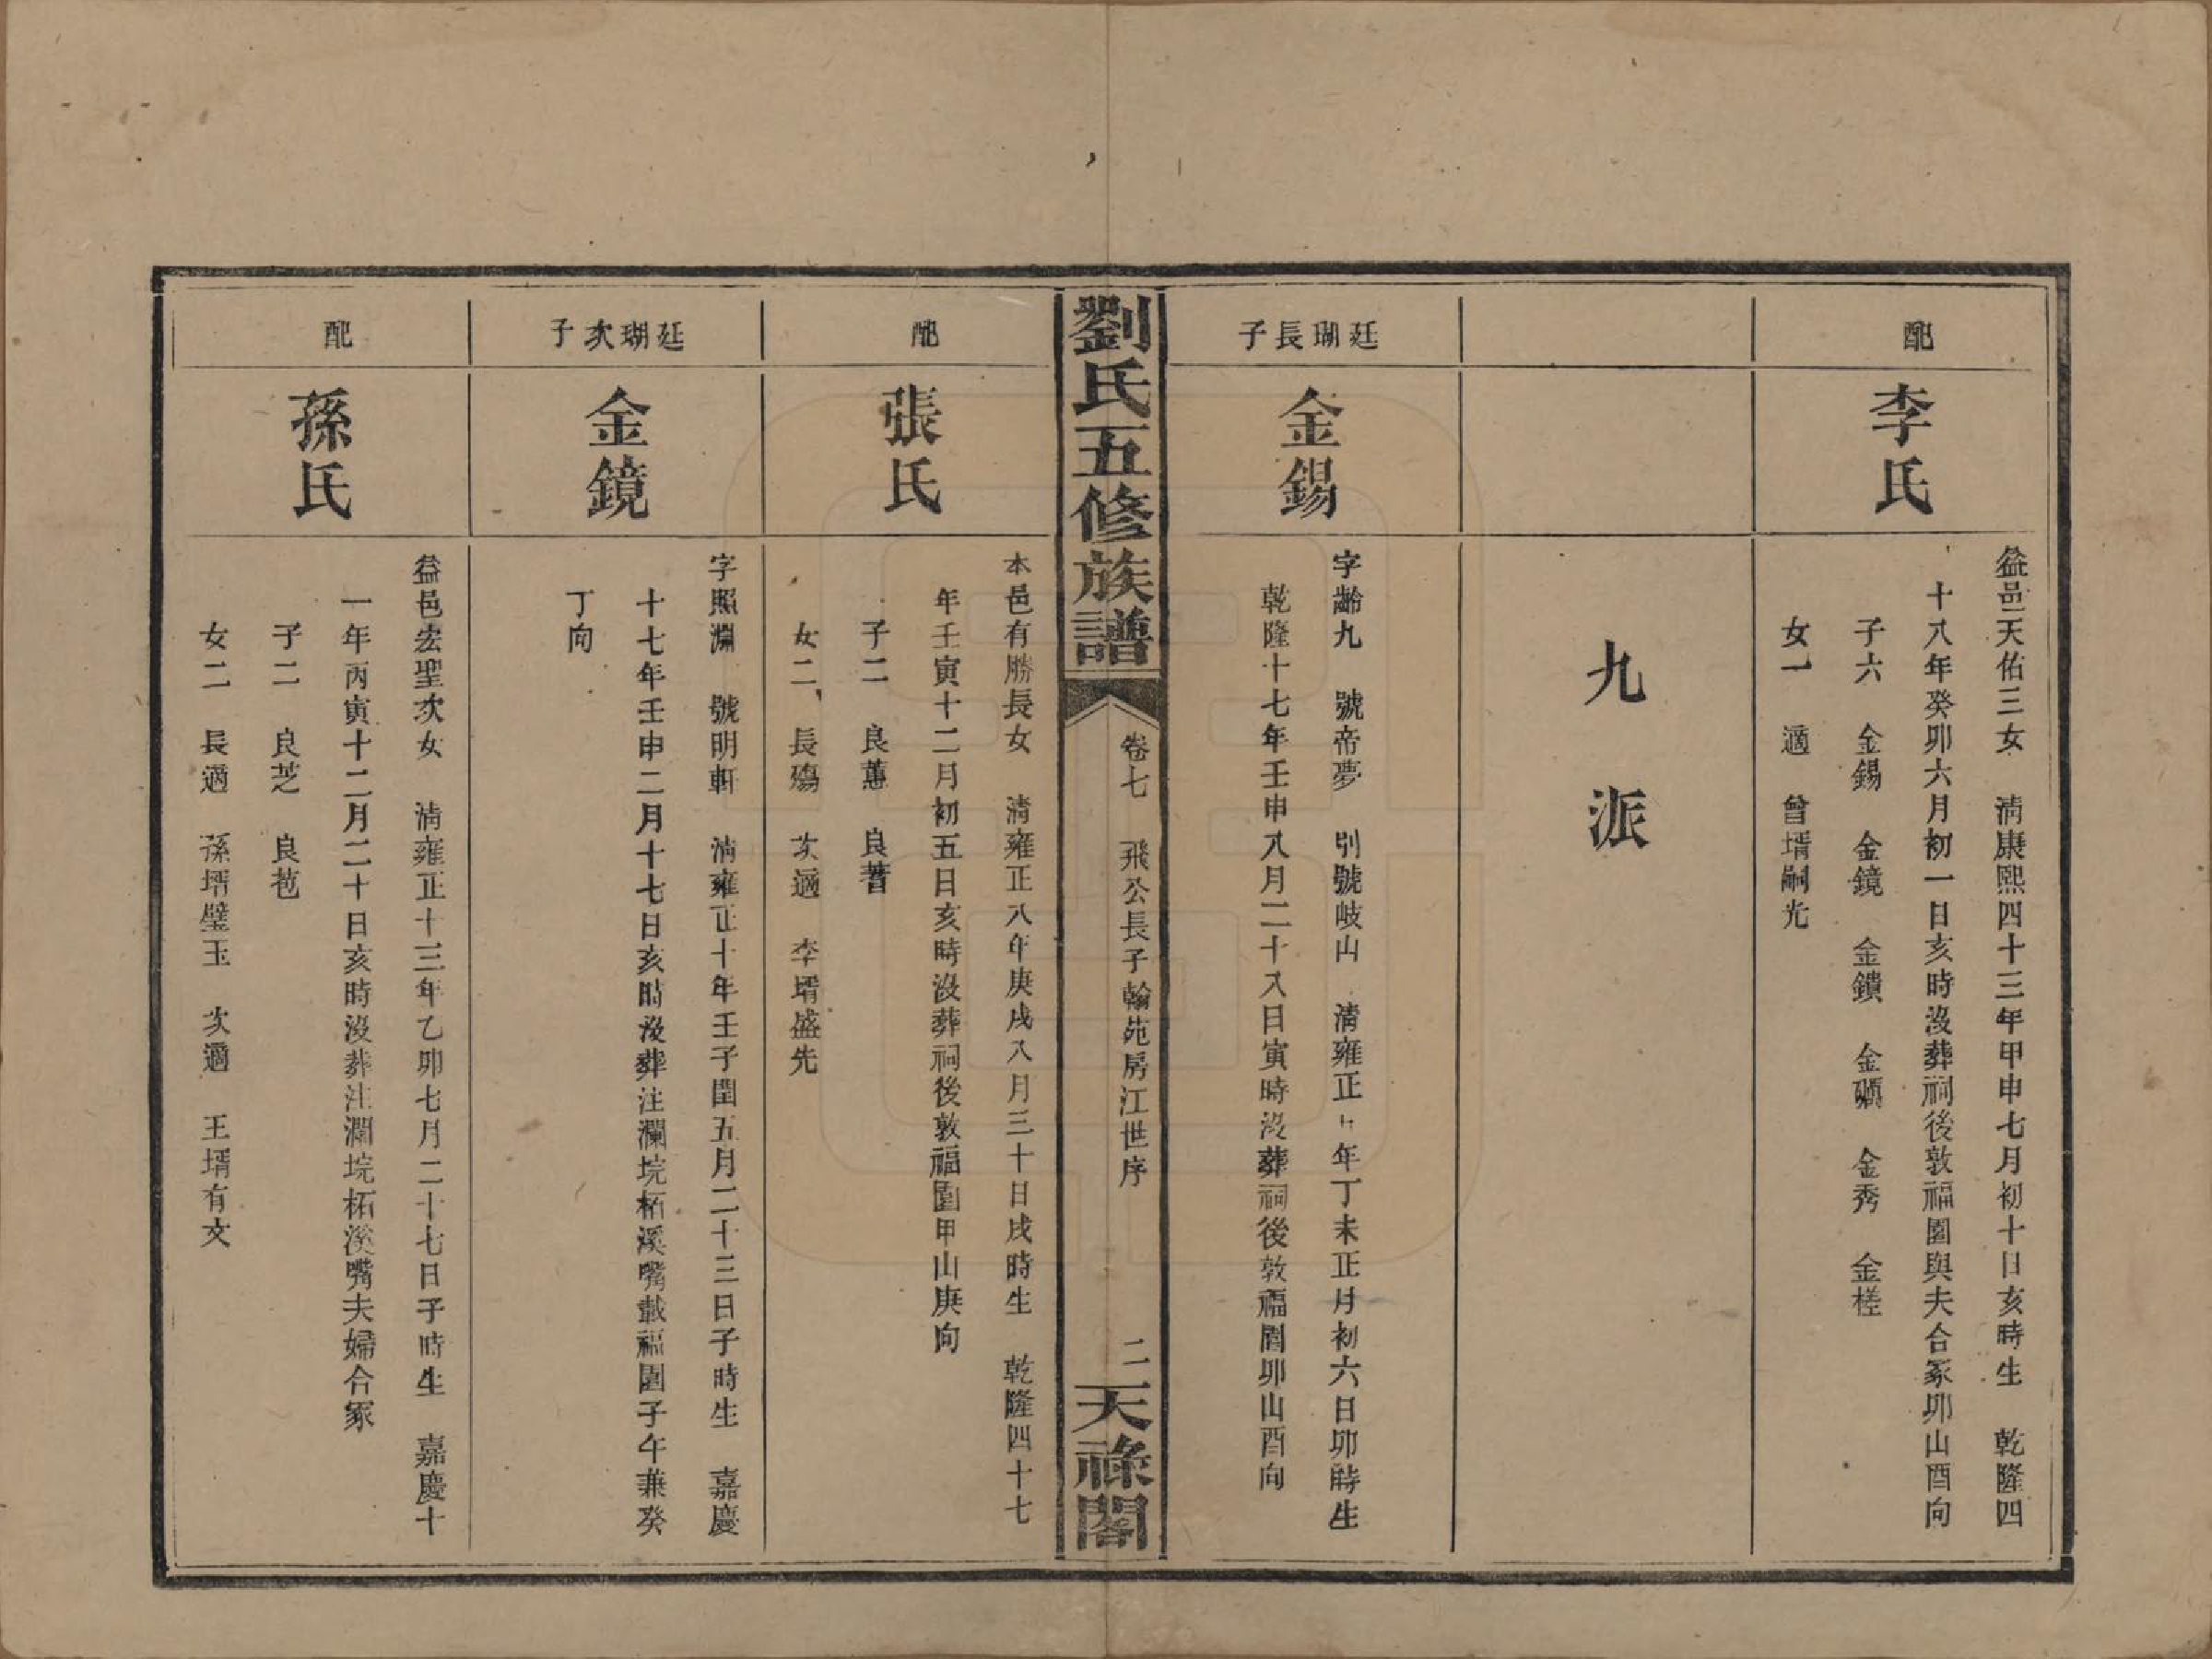 配
李氏
益邑天佑三女　清康熙四十三年甲申七月初十日亥時生　乾隆四
十八年癸卯六月初一日亥時沒葬祠後敦福園與夫合冢卯山酉向
子六　金錫　金鏡　金鐀　金礪　金秀　金槎
女一　適　曾壻嗣光
九派
廷瑚長子
金錫
字齡九　號帝夢　別號岐山　清雍正年丁未正月初六日卯時生
乾隆十七年壬申八月二十八日寅時沒葬祠後敦福園卯山酉向
劉氏五修族譜
卷七　飛公長子翰苑房江世序
二
天祿閣
配
張氏
本邑有勝長女　清雍正八年庚戌八月三十日戌時生　乾隆四十七
年壬寅十二月初五日亥時沒葬祠後敦福園甲山庚向
子二　良蕙　良蓍
女二　長殤　次適　李壻盛先
廷瑚次子
金鏡
字照淵　號明軒　清雍正十年壬子閏五月二十三日子時生　嘉慶
十七年壬申二月十七日亥時沒葬注瀾垸柘溪嘴載福園子午兼癸
丁向
配
孫氏
益邑宏聖次女　清雍正十三年乙卯七月二十七日子時生　嘉慶十
一年丙寅十二月二十日亥時沒葬注瀾垸柘溪嘴夫婦合冢
子二　良芝　良苞
女二　長適　孫壻璧玉　次適　王壻有文